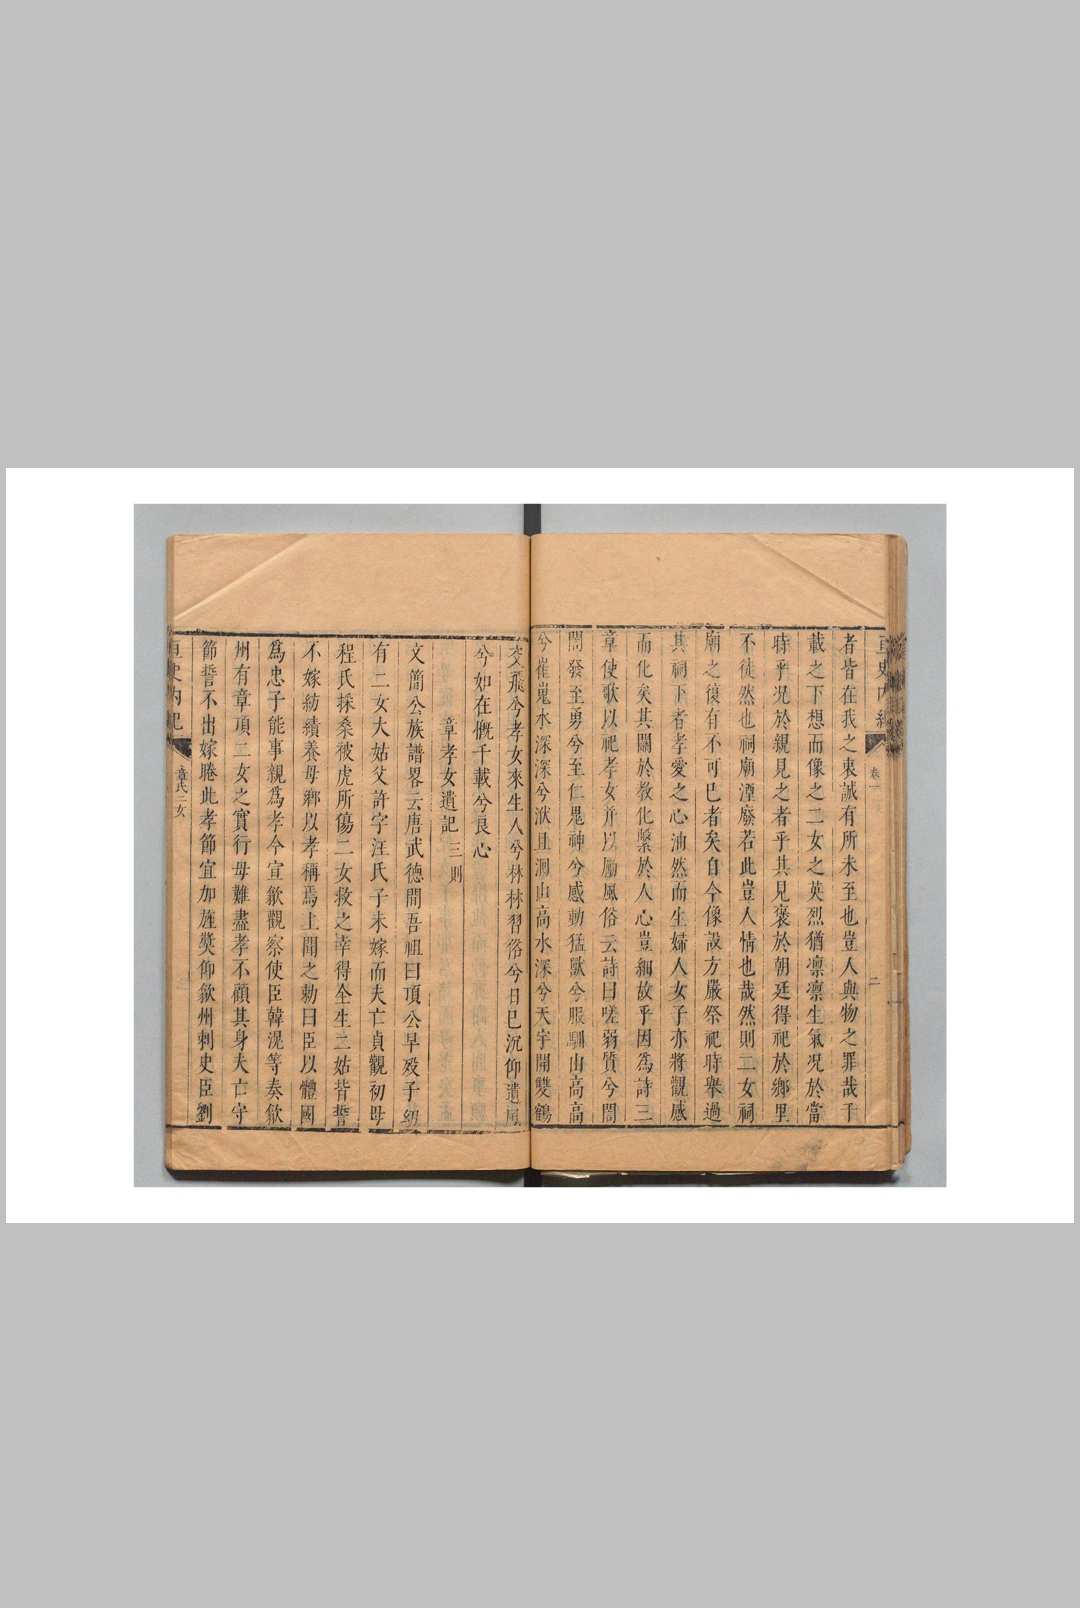 亘史内紀
卷一
二
者皆在我之衷誠有所未至也豈人與物之罪哉千
載之下想而像之二女之英烈猶凛凛生氣况於當
時乎况於親見之者乎其見褒於朝廷得祀於鄉里
不徒然也祠廟湮廢若此豈人情也哉然則二女祠
廟之復有不可已者矣自今像設方嚴祭祀時舉過
其祠下者孝愛之心油然而生婦人女子亦將觀感
而化矣其關於教化繫於人心豈細故乎因為詩三
章使歌以祀孝女并以勵風俗云詩曰嗟弱質兮閨
閤發至勇兮至仁鬼神兮感動猛獸兮服馴山高高
兮崔嵬水深深兮洑且洄山高水深兮天宇開雙鶴
交飛兮孝女來生人兮林林習俗兮日已沉仰遺風
兮如在慨千載兮良心
章孝女遺記三則
文簡公族譜畧云唐武德間吾祖曰頂公早殁子幼
有二女大姑父許字汪氏子未嫁而夫亡貞觀初母
程氏採桑被虎所傷二女救之幸得全生二姑皆誓
不嫁紡績養母鄉以孝稱焉上聞之勅曰臣以體國
為忠子能事親為孝今宣歙觀察使臣韓滉等奏歙
州有章頂二女之實行母難盡孝不顧其身夫亡守
節誓不出嫁睠此孝節宜加旌奬仰歙州刺史臣劉
亘史内紀
章氏二女